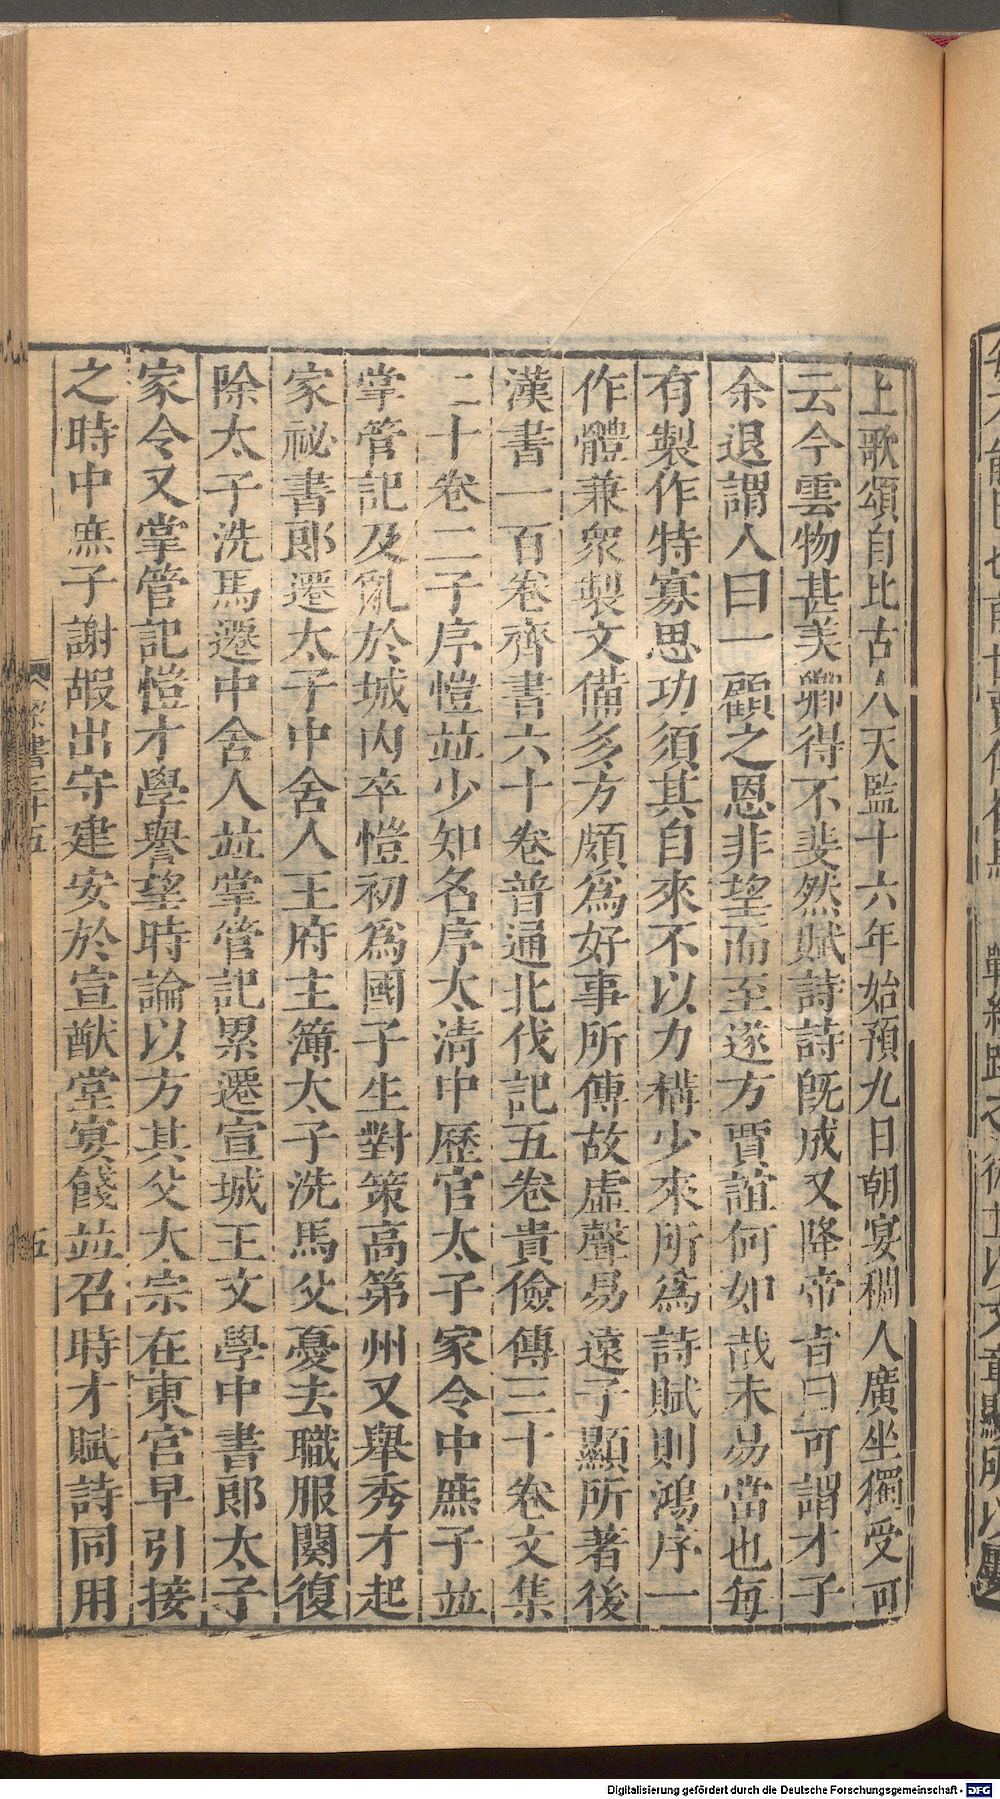 上歌頌自比古人天監十六年始預九日朝宴稠人廣坐獨受
云今雲物甚美卿得不斐然賦詩詩旣成又降帝旨曰可謂才子
余退謂人曰一顧之恩非望而至遂方賈誼何如哉未易當也每
有製作特寡思功須其自來不以力構少來所爲詩賦則鴻序一
作體兼衆製文備多方頗爲好事所傳故虛聲易遠子顯所著後
漢書一百卷齊書六十卷普通北伐記五卷貴儉傳三十卷文集
二十卷二子序愷並少知名序太清中歷官太子家令中庶子並
掌管記及亂於城內卒愷初爲國子生對策高第州又舉秀才起
家祕書郎遷太子中舍人王府主簿太子洗馬父憂去職服闋復
除太子洗馬遷中舍人並掌管記累遷宣城王文學中書郎太子
家令又掌管記愷才學譽望時論以方其父太宗在東宮早引接
之時中庶子謝嘏出守建安於宣猷堂宴餞並召時才賦詩同用
梁書三十五
五
Digitalisierung gefördert durch die Deutsche Forschungsgemeinschaft - DFG